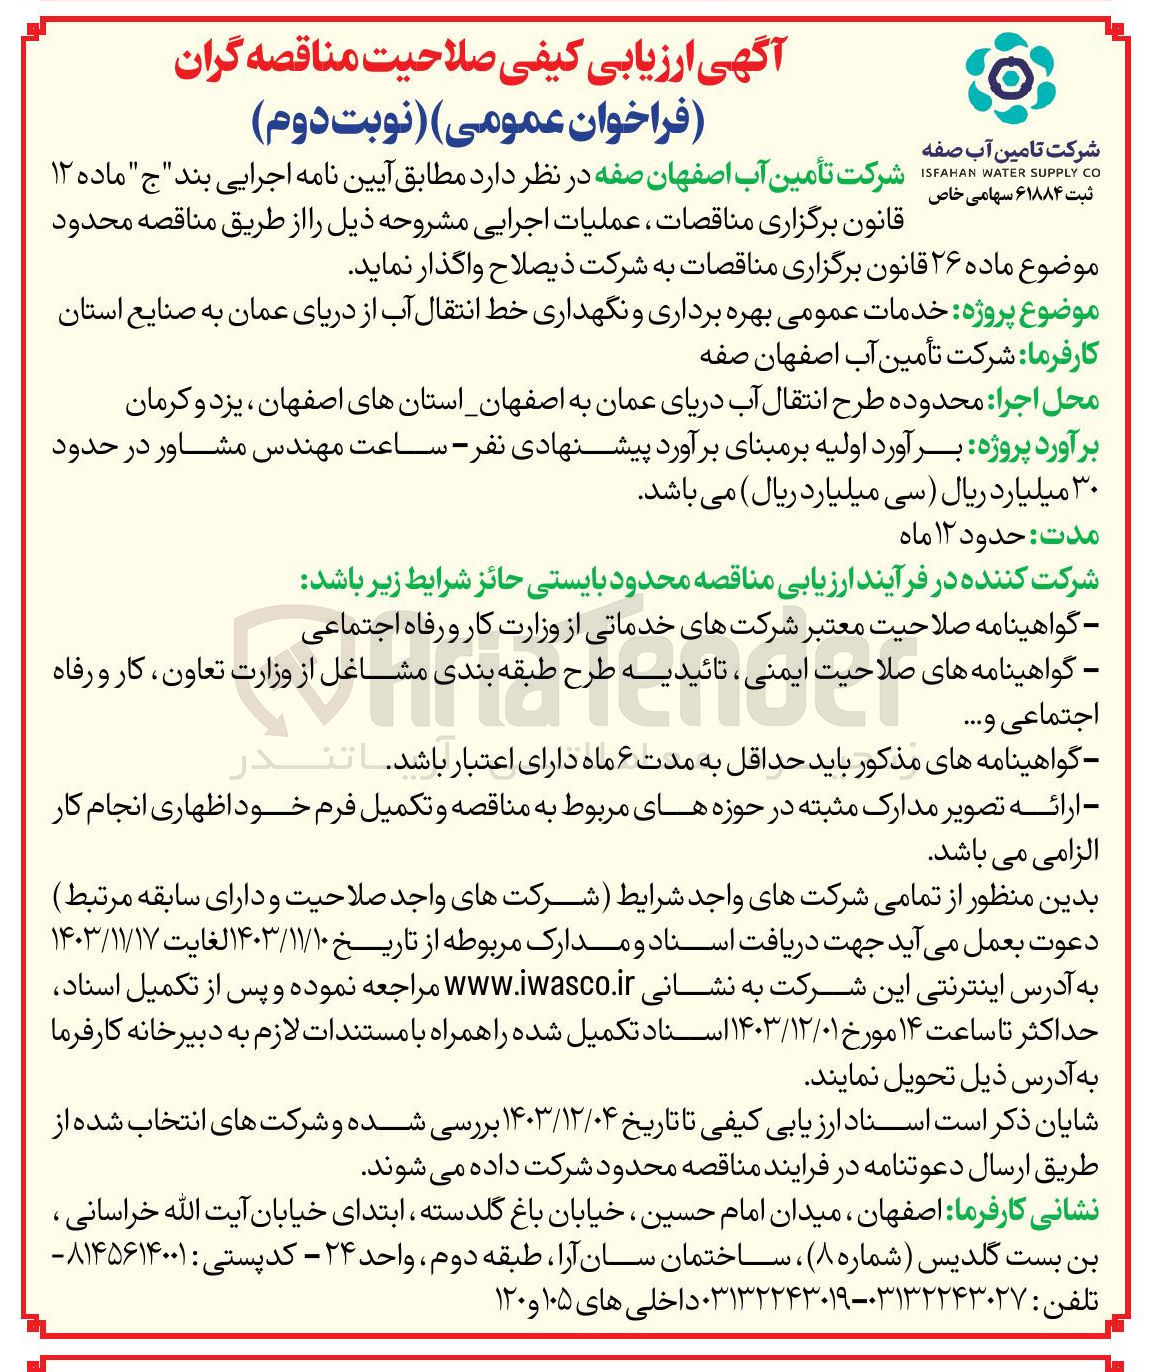 آگهی ارزیابی کیفی صلاحیت مناقصه گران
(فراخوان عمومی)(نوبت دوم)
شرکت تامین آب صفه
ISFAHAN WATER SUPPLY CO
ثبت ۶۱۸۸۴ سهامی خاص
شرکت تأمین آب اصفهان صفه در نظر دارد مطابق آیین نامه اجرایی بند "ج" ماده ۱۲
قانون برگزاری مناقصات، عملیات اجرایی مشروحه ذیل را از طریق مناقصه محدود
موضوع ماده ۲۶ قانون برگزاری مناقصات به شرکت ذیصلاح واگذار نماید.
موضوع پروژه: خدمات عمومی بهره برداری و نگهداری خط انتقال آب از دریای عمان به صنایع استان
کارفرما: شرکت تأمین آب اصفهان صفه
محل اجرا: محدوده طرح انتقال آب دریای عمان به اصفهان_استان های اصفهان، یزد و کرمان
برآورد پروژه: برآورد اولیه برمبنای برآورد پیشنهادی نفر- ساعت مهندس مشاور در حدود
۳۰ میلیارد ریال (سی میلیارد ریال) می باشد.
مدت: حدود ۱۲ ماه
شرکت کننده در فرآیند ارزیابی مناقصه محدود بایستی حائز شرایط زیر باشد:
- گواهینامه صلاحیت معتبر شرکت های خدماتی از وزارت کار و رفاه اجتماعی
- گواهینامه های صلاحیت ایمنی، تائیدیه طرح طبقه بندی مشاغل از وزارت تعاون، کار و رفاه
اجتماعی و...
- گواهینامه های مذکور باید حداقل به مدت ۶ ماه دارای اعتبار باشد.
- ارائه تصویر مدارک مثبته در حوزه های مربوط به مناقصه و تکمیل فرم خوداظهاری انجام کار
الزامی می باشد.
بدین منظور از تمامی شرکت های واجد شرایط (شرکت های واجد صلاحیت و دارای سابقه مرتبط)
دعوت بعمل می آید جهت دریافت اسناد و مدارک مربوطه از تاریخ ۱۴۰۳/۱۱/۱۰ لغایت ۱۴۰۳/۱۱/۱۷
به آدرس اینترنتی این شرکت به نشانی www.iwasco.ir مراجعه نموده و پس از تکمیل اسناد،
حداکثر تا ساعت ۱۴ مورخ ۱۴۰۳/۱۲/۰۱ اسناد تکمیل شده را همراه با مستندات لازم به دبیرخانه کارفرما
به آدرس ذیل تحویل نمایند.
شایان ذکر است اسناد ارزیابی کیفی تا تاریخ ۱۴۰۳/۱۲/۰۴ بررسی شده و شرکت های انتخاب شده از
طریق ارسال دعوتنامه در فرایند مناقصه محدود شرکت داده می شوند.
نشانی کارفرما: اصفهان، میدان امام حسین، خیابان باغ گلدسته، ابتدای خیابان آیت الله خراسانی،
بن بست گلدیس (شماره ۸)، ساختمان سان آرا، طبقه دوم، واحد ۲۴ - کدپستی: ۸۱۴۵۶۱۴۰۰۱ -
تلفن: ۰۳۱۳۲۲۴۳۰۲۷-۰۳۱۳۲۲۴۳۰۱۹ داخلی های ۱۰۵ و ۱۲۰
AriaTender